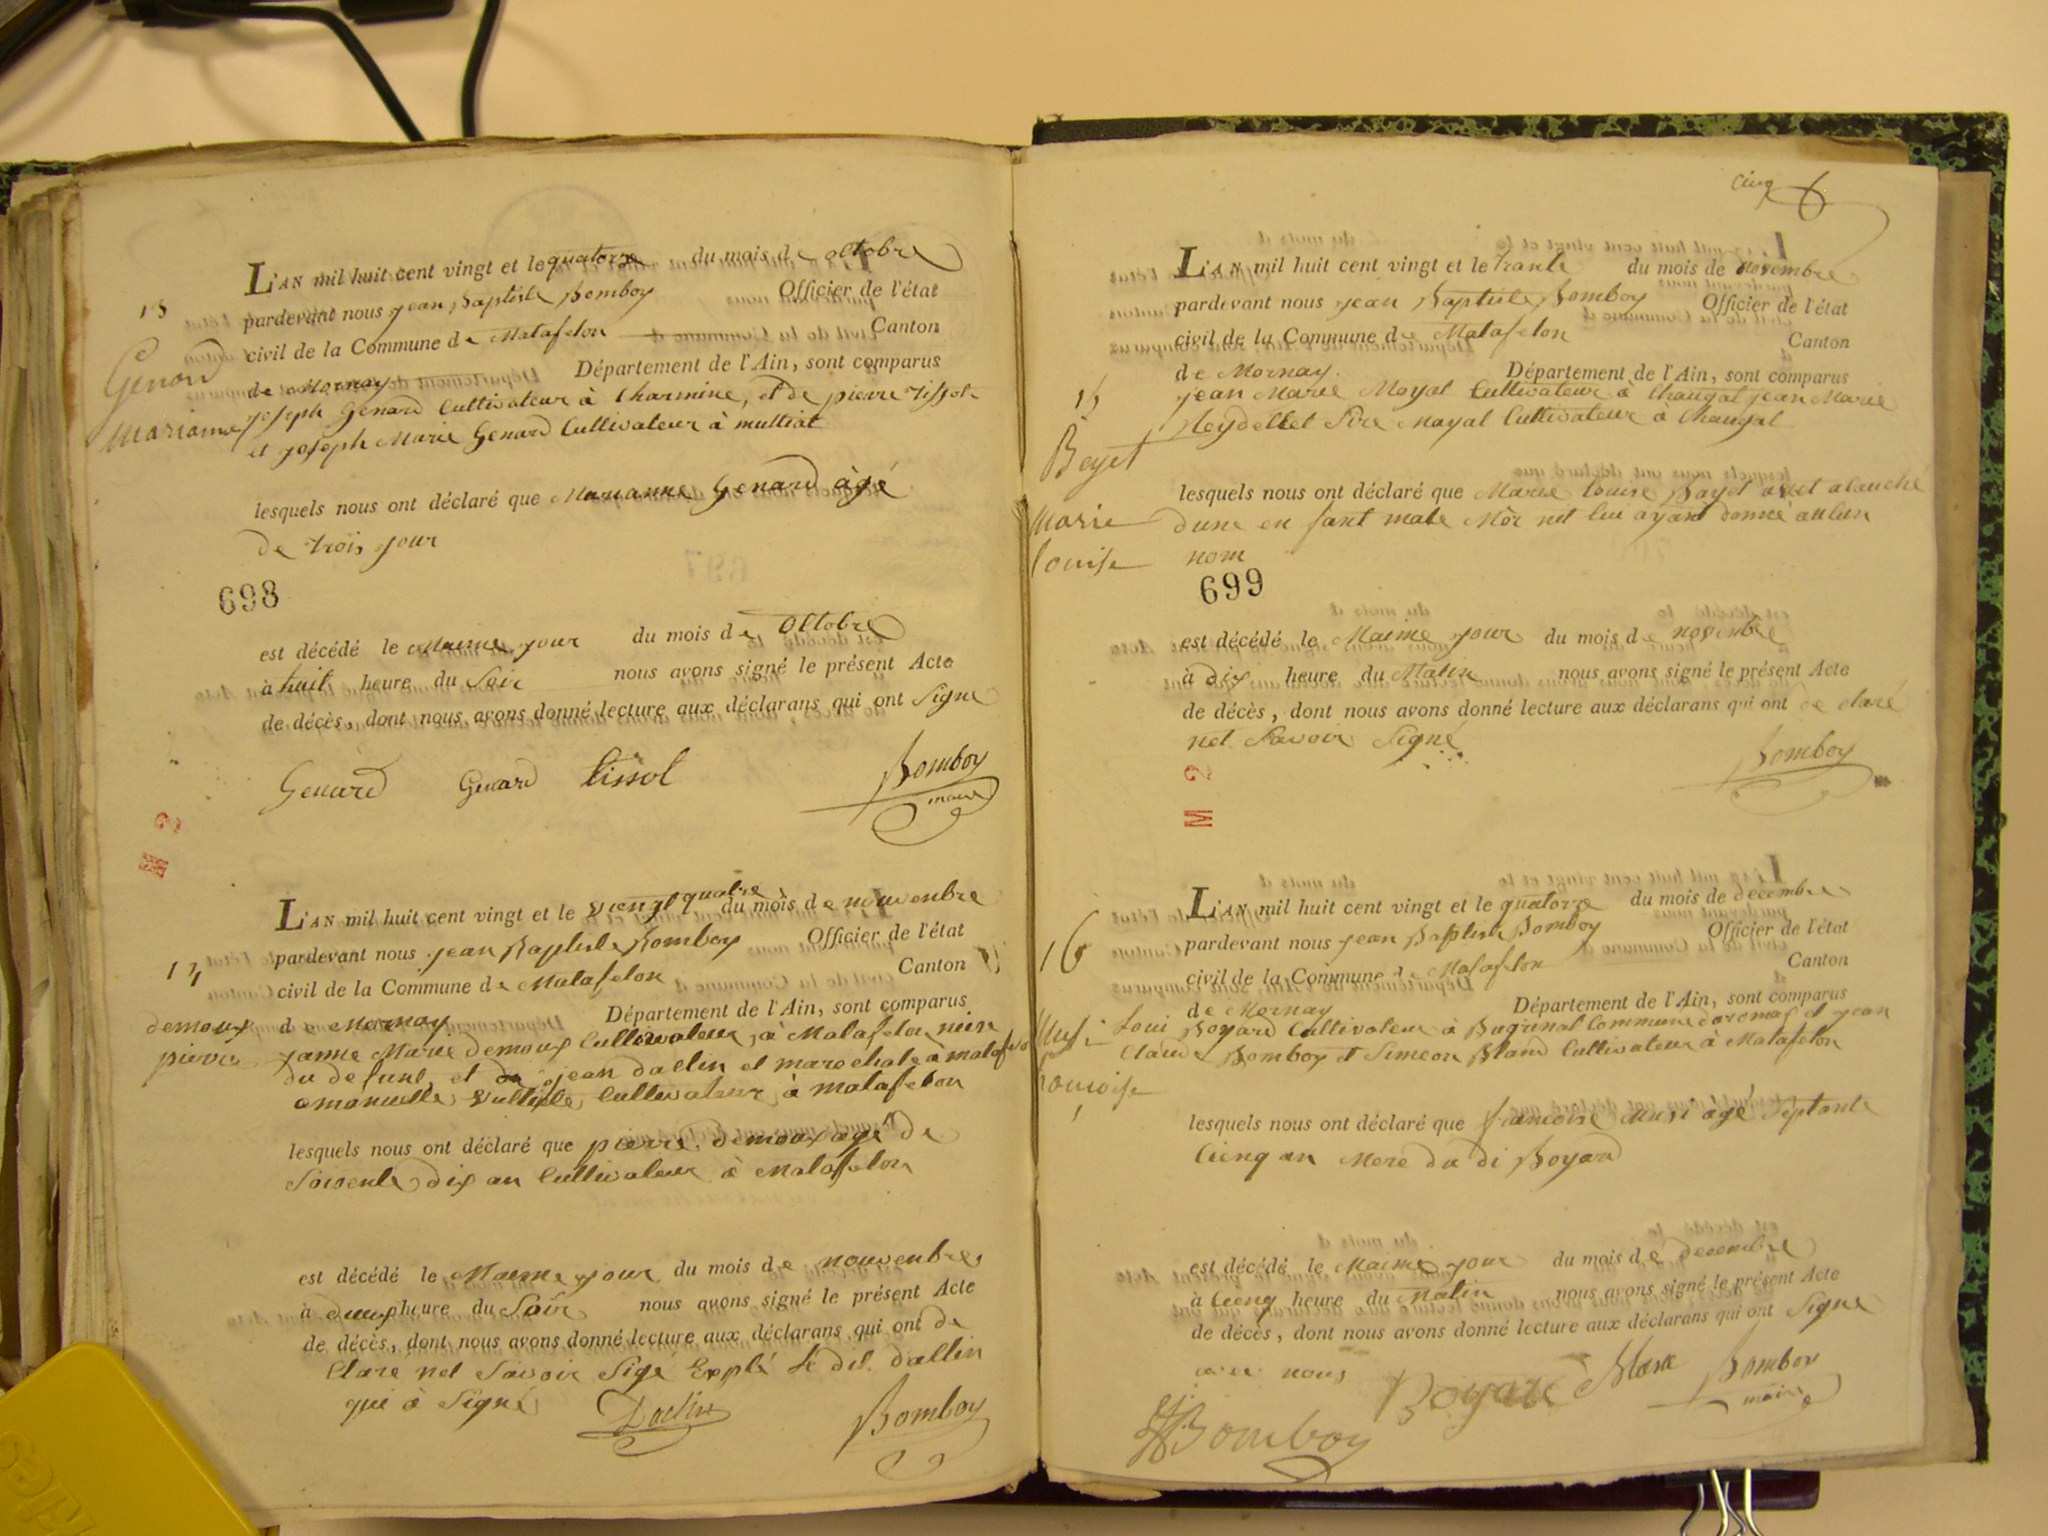 13
Genard
Mariane
L'AN mil huit cent vingt et le quatorze du mois de octobre
pardevant nous jean Baptiste Bomboy Officier de l'état
civil de la Commune de Matafelon Canton
de Mornay Département de l'Ain, sont comparus
joseph Genard Cultivateur à Charmine, et de pierre Tissot
et joseph Marie Genard Cultivateur à multiat
lesquels nous ont déclaré que Marianne Genard àgé
de trois jour
698
est décédé le Maime jour du mois de Octobre
à huit heure du Soir nous avons signé le présent Acte
de décès, dont nous avons donné lecture aux déclarans qui ont Signe
Genard Genard tissot Bomboy
maire
M 2
14
demoux
pierre
L'AN mil huit cent vingt et le viengt quatre du mois de nouvenbre
pardevant nous jean Baptiste Bomboy Officier de l'état
civil de la Commune de Matafelon Canton
de Mornay Département de l'Ain, sont comparus
janne Marie demoux Cultivateur à Matafelon
du defunt et jean daclin et marechale à matafelon
emanuelle Cultivateur à matafelon
lesquels nous ont déclaré que pierre demoux agé de
Soisente dix an Cultivateur à Matafelon
est décédé le Maime jour du mois de nouvenbre
à deux heure du Soir nous avons signé le présent Acte
de décès, dont nous avons donné lecture aux déclarans qui ont de
Clare net Savoir Sigé Explé le dit dallin
qui à Signé Daclin Bomboy
cinq 6
15
Beyet
Marie
Louise
L'AN mil huit cent vingt et le trante du mois de novembre
pardevant nous jean Baptiste Bomboy Officier de l'état
civil de la Commune de Matafelon Canton
de Mornay. Département de l'Ain, sont comparus
jean Marie Moyat Cultivateur à Chaugat jean Marie
Heydellet Mayat Cultivateur à Chaugat
lesquels nous ont déclaré que Marie Louise Bayet avet alouché
dune en fant male Mòr net lui ayant donné aulun
nom
699
est décédé le Maime jour du mois de novembre
à dix heure du Matin nous avons signé le présent Acte
de décès, dont nous avons donné lecture aux déclarans qui ont de claré
net Savoir Signé
Bomboy
M 2
16
Musi
L'AN mil huit cent vingt et le quatorze du mois de decembre
pardevant nous jean Baptiste Bomboy Officier de l'état
civil de la Commune de Matafelon Canton
de Mornay Département de l'Ain, sont comparus
Loui Boyard Cultivateur à Commune daromas et jean
Claude Bomboy et Simeon Bland Cultivateur à Matafelon
lesquels nous ont déclaré que francoise Musi agé Séptante
Cienq an Mere du di Boyard
est décédé le Maime jour du mois de decembre
à Cienq heure du Matin nous avons signé le présent Acte
de décès, dont nous avons donné lecture aux déclarans qui ont Signe
avec nous Boyard Blanc Bomboy
maire
Bomboy